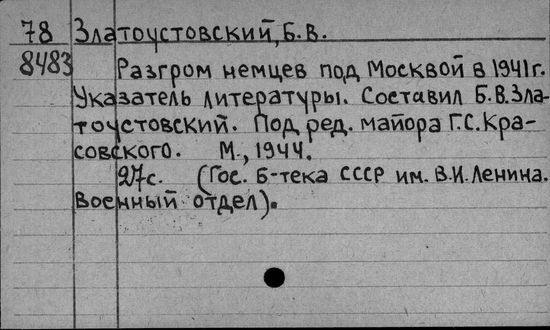 78 Златоустовский, Б.В.
8483 Разгром немцев под Москвой в 1941г.
Указатель литературы. Составил Б.В.Зла-
тоустовский. Под ред. майора Г.С.Кра-
совского. М., 1944.
27с. (Гос. Б-тека СССР им. В.И.Ленина.
Военный отдел).